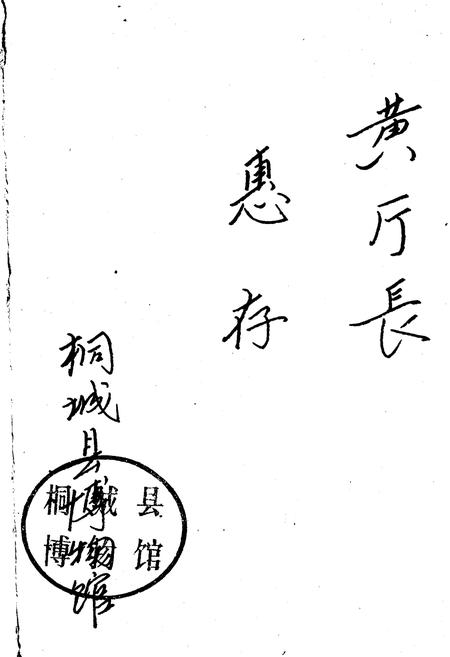 黄厅長
惠存
桐城县博物馆
桐城县
博物馆